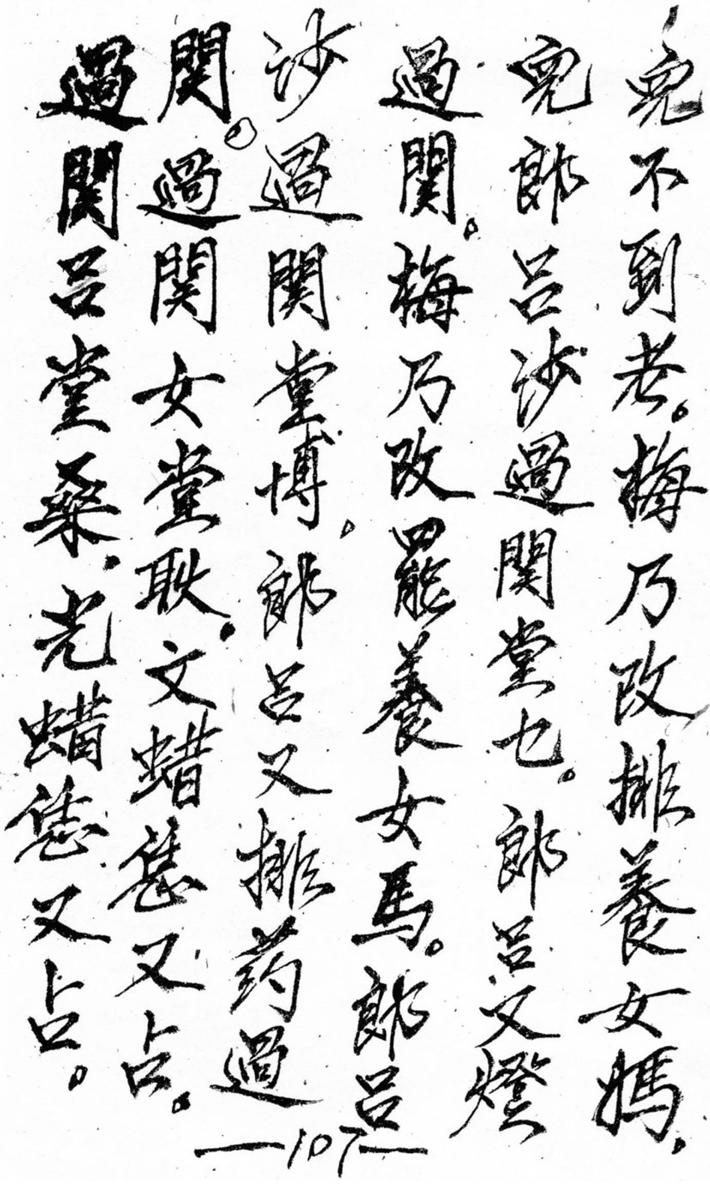 兜不到老。梅乃改排養女媽。
兜郎呂沙過関堂乜。郎呂又燈
過関。梅乃改罷養女馬。郎呂
沙過関堂博。郎呂又排药過
関。過関女堂耿。文蜡恁又占。
過関呂堂桑。光蜡恁又占。
—107—